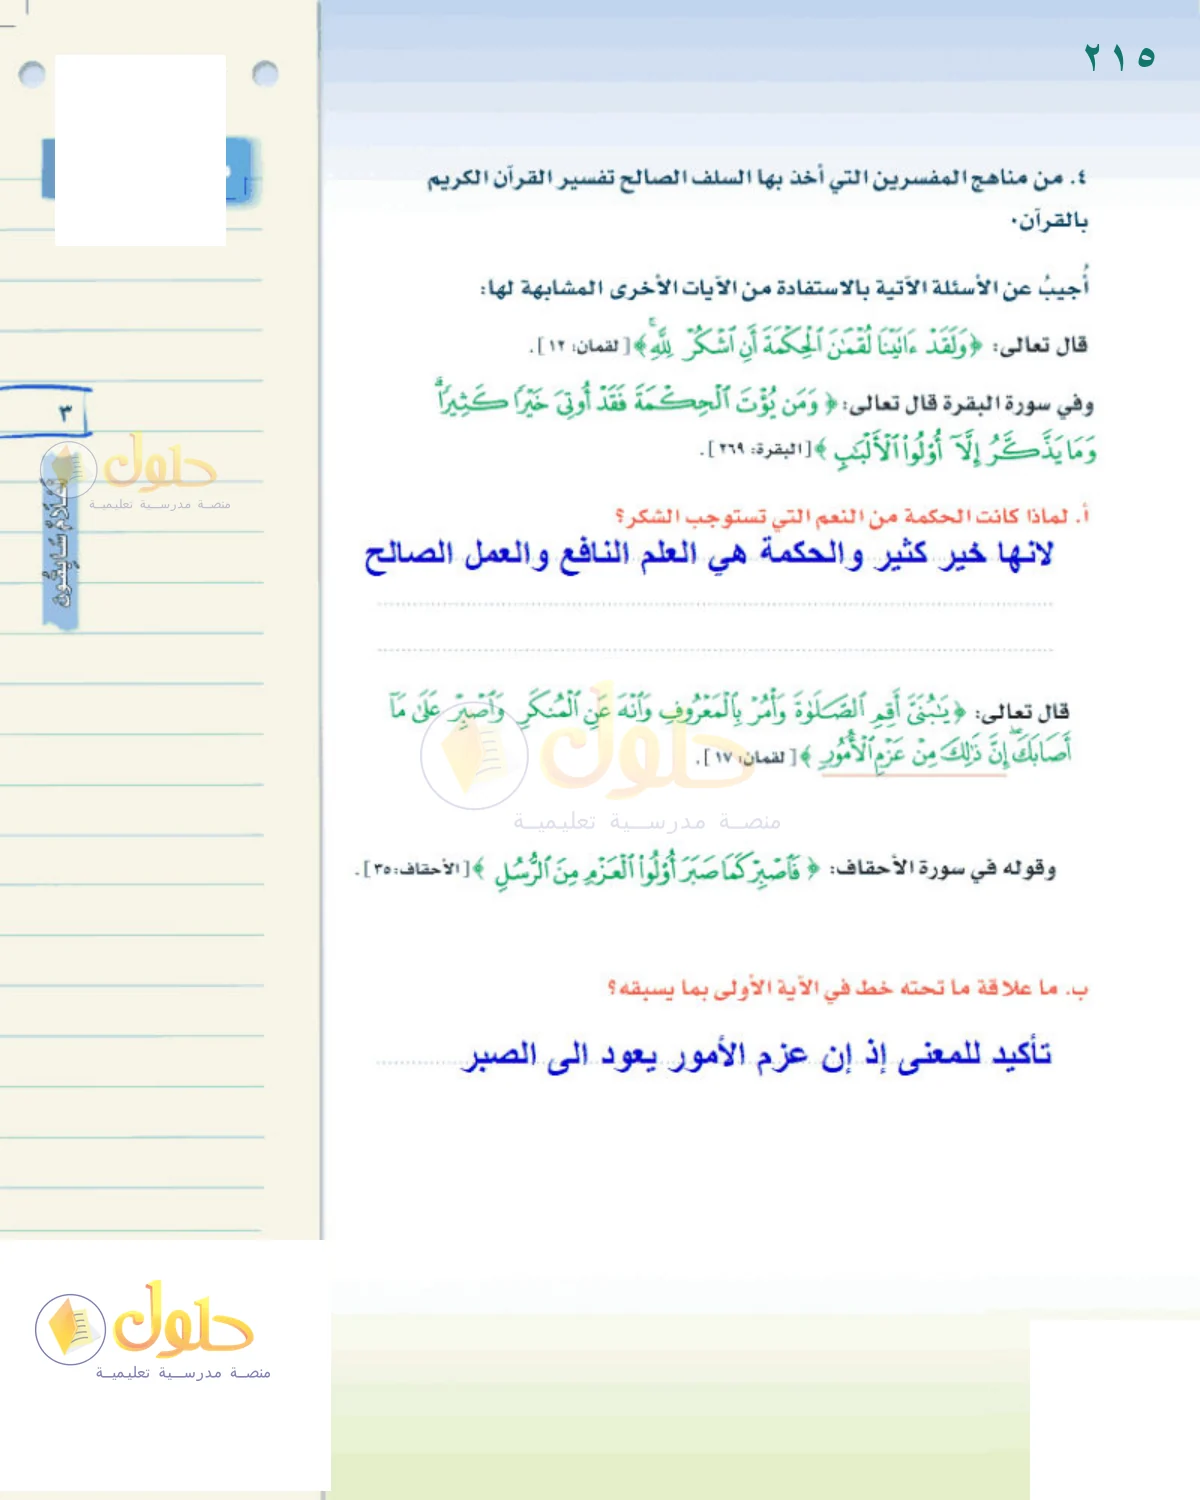 ٢١٥
٤. من مناهج المفسرين التي أخذ بها السلف الصالح تفسير القرآن الكريم
بالقرآن.
أُجيبُ عن الأسئلة الآتية بالاستفادة من الآيات الأخرى المشابهة لها:
قال تعالى: ﴿وَلَقَدْ ءَاتَيْنَا لُقْمَٰنَ ٱلْحِكْمَةَ أَنِ ٱشْكُرْ لِلَّهِ ۚ﴾ [لقمان: ١٢].
وفي سورة البقرة قال تعالى: ﴿وَمَن يُؤْتَ ٱلْحِكْمَةَ فَقَدْ أُوتِىَ خَيْرًا كَثِيرًا ۗ
وَمَا يَذَّكَّرُ إِلَّآ أُو۟لُوا۟ ٱلْأَلْبَٰبِ﴾ [البقرة: ٢٦٩].
أ. لماذا كانت الحكمة من النعم التي تستوجب الشكر؟
لانها خير كثير والحكمة هي العلم النافع والعمل الصالح
قال تعالى: ﴿يَٰبُنَىَّ أَقِمِ ٱلصَّلَوٰةَ وَأْمُرْ بِٱلْمَعْرُوفِ وَٱنْهَ عَنِ ٱلْمُنكَرِ وَٱصْبِرْ عَلَىٰ مَآ
أَصَابَكَ ۖ إِنَّ ذَٰلِكَ مِنْ عَزْمِ ٱلْأُمُورِ﴾ [لقمان: ١٧].
وقوله في سورة الأحقاف: ﴿فَٱصْبِرْ كَمَا صَبَرَ أُو۟لُوا۟ ٱلْعَزْمِ مِنَ ٱلرُّسُلِ﴾ [الأحقاف: ٣٥].
ب. ما علاقة ما تحته خط في الآية الأولى بما يسبقه؟
تأكيد للمعنى إذ إن عزم الأمور يعود الى الصبر
٣
حلول
منصة مدرسية تعليمية
حلول
منصة مدرسية تعليمية
حلول
منصة مدرسية تعليمية